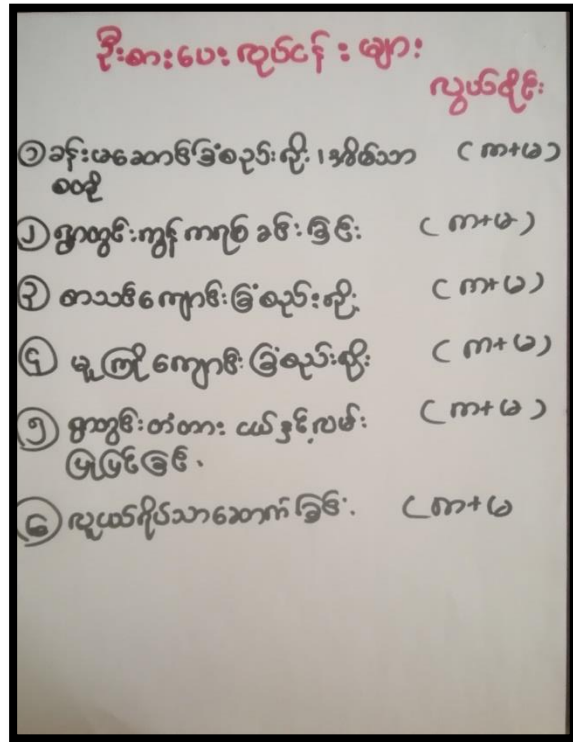 ဦးစားပေးလုပ်ငန်းများ
လွယ်ဝိုင်း
① ခန်းမဆောင်ခြံစည်းရိုး၊ အိမ်သာ (ကာ+မ)
စတို
② ရွာတွင်းကွန်ကရစ်ခင်းခြင်း (ကာ+မ)
③ စာသင်ကျောင်းခြံစည်းရိုး (ကာ+မ)
④ မူကြိုကျောင်းခြံစည်းရိုး (ကာ+မ)
⑤ ရွာတွင်းတံတားငယ်နှင့်လမ်း (ကာ+မ)
ပြုပြင်ခြင်း.
⑥ လူငယ်ရိပ်သာဆောက်ခြင်း. (ကာ+မ